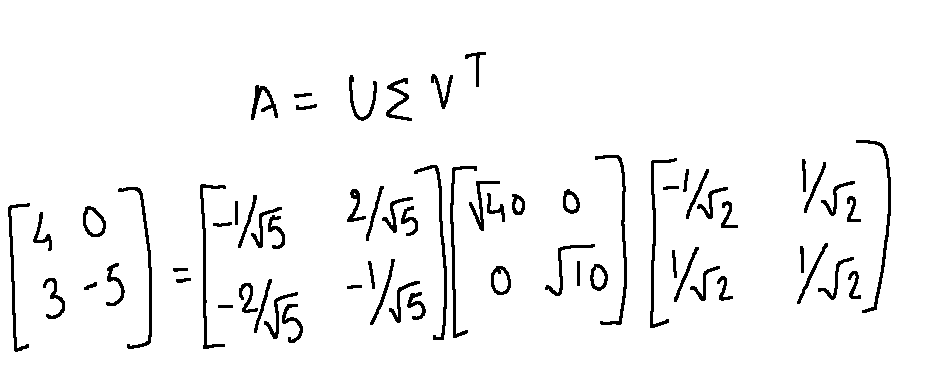 A = UΣV^T
[4 0; 3 -5] = [-1/√5 2/√5; -2/√5 -1/√5] [√40 0; 0 √10] [-1/√2 1/√2; 1/√2 1/√2]